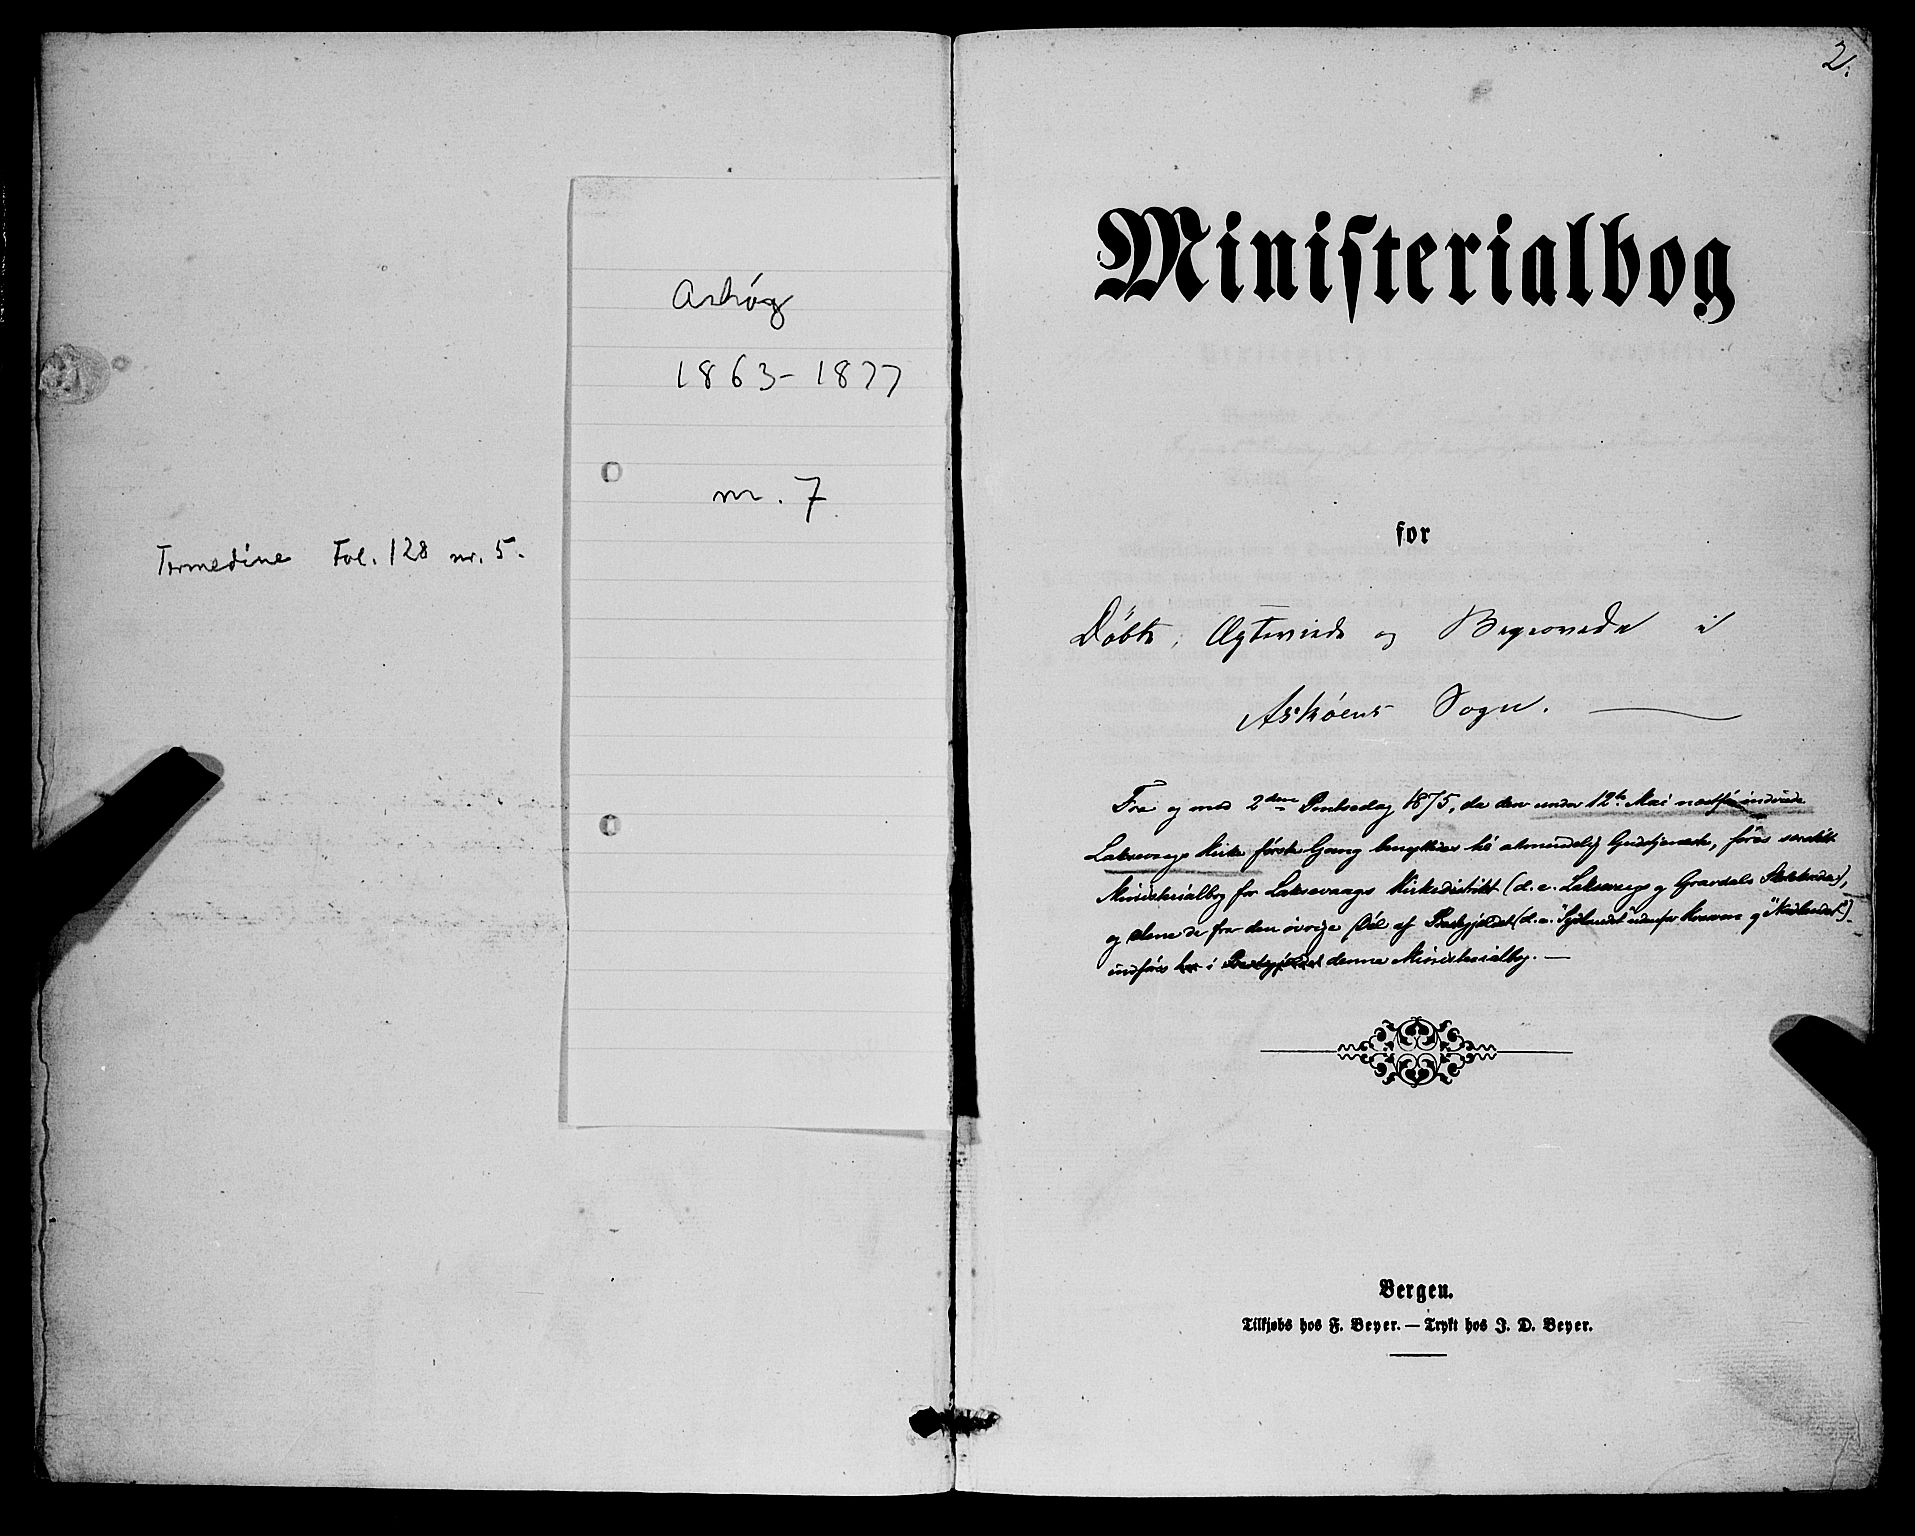 Tormedine Fol. 128 nr. 5.
Askøy
1863-1877
nr. 7
2.
Ministerialbog
for
Døbte, Ægteviede og Begravede i
Askøens Sogn.
Fra og med 2den Pintsedag 1875, da den under 12te Mai næstf. indviede
Laksevaags Kirke første Gang benyttedes til almindelig Gudstjeneste, føres særskilt
Ministerialbog for Laksevaags Kirkedistrikt (d. e. Laksevaags og Gravdals Skolekredse),
og alene de fra den øvrige Del af Præstegjeldet (d. e. "Sydlandet" udenfor og "Nordlandet")
indføres her i denne Ministerialbog. —
Bergen.
Tilkjøbs hos F. Beyer. — Trykt hos J. D. Beyer.